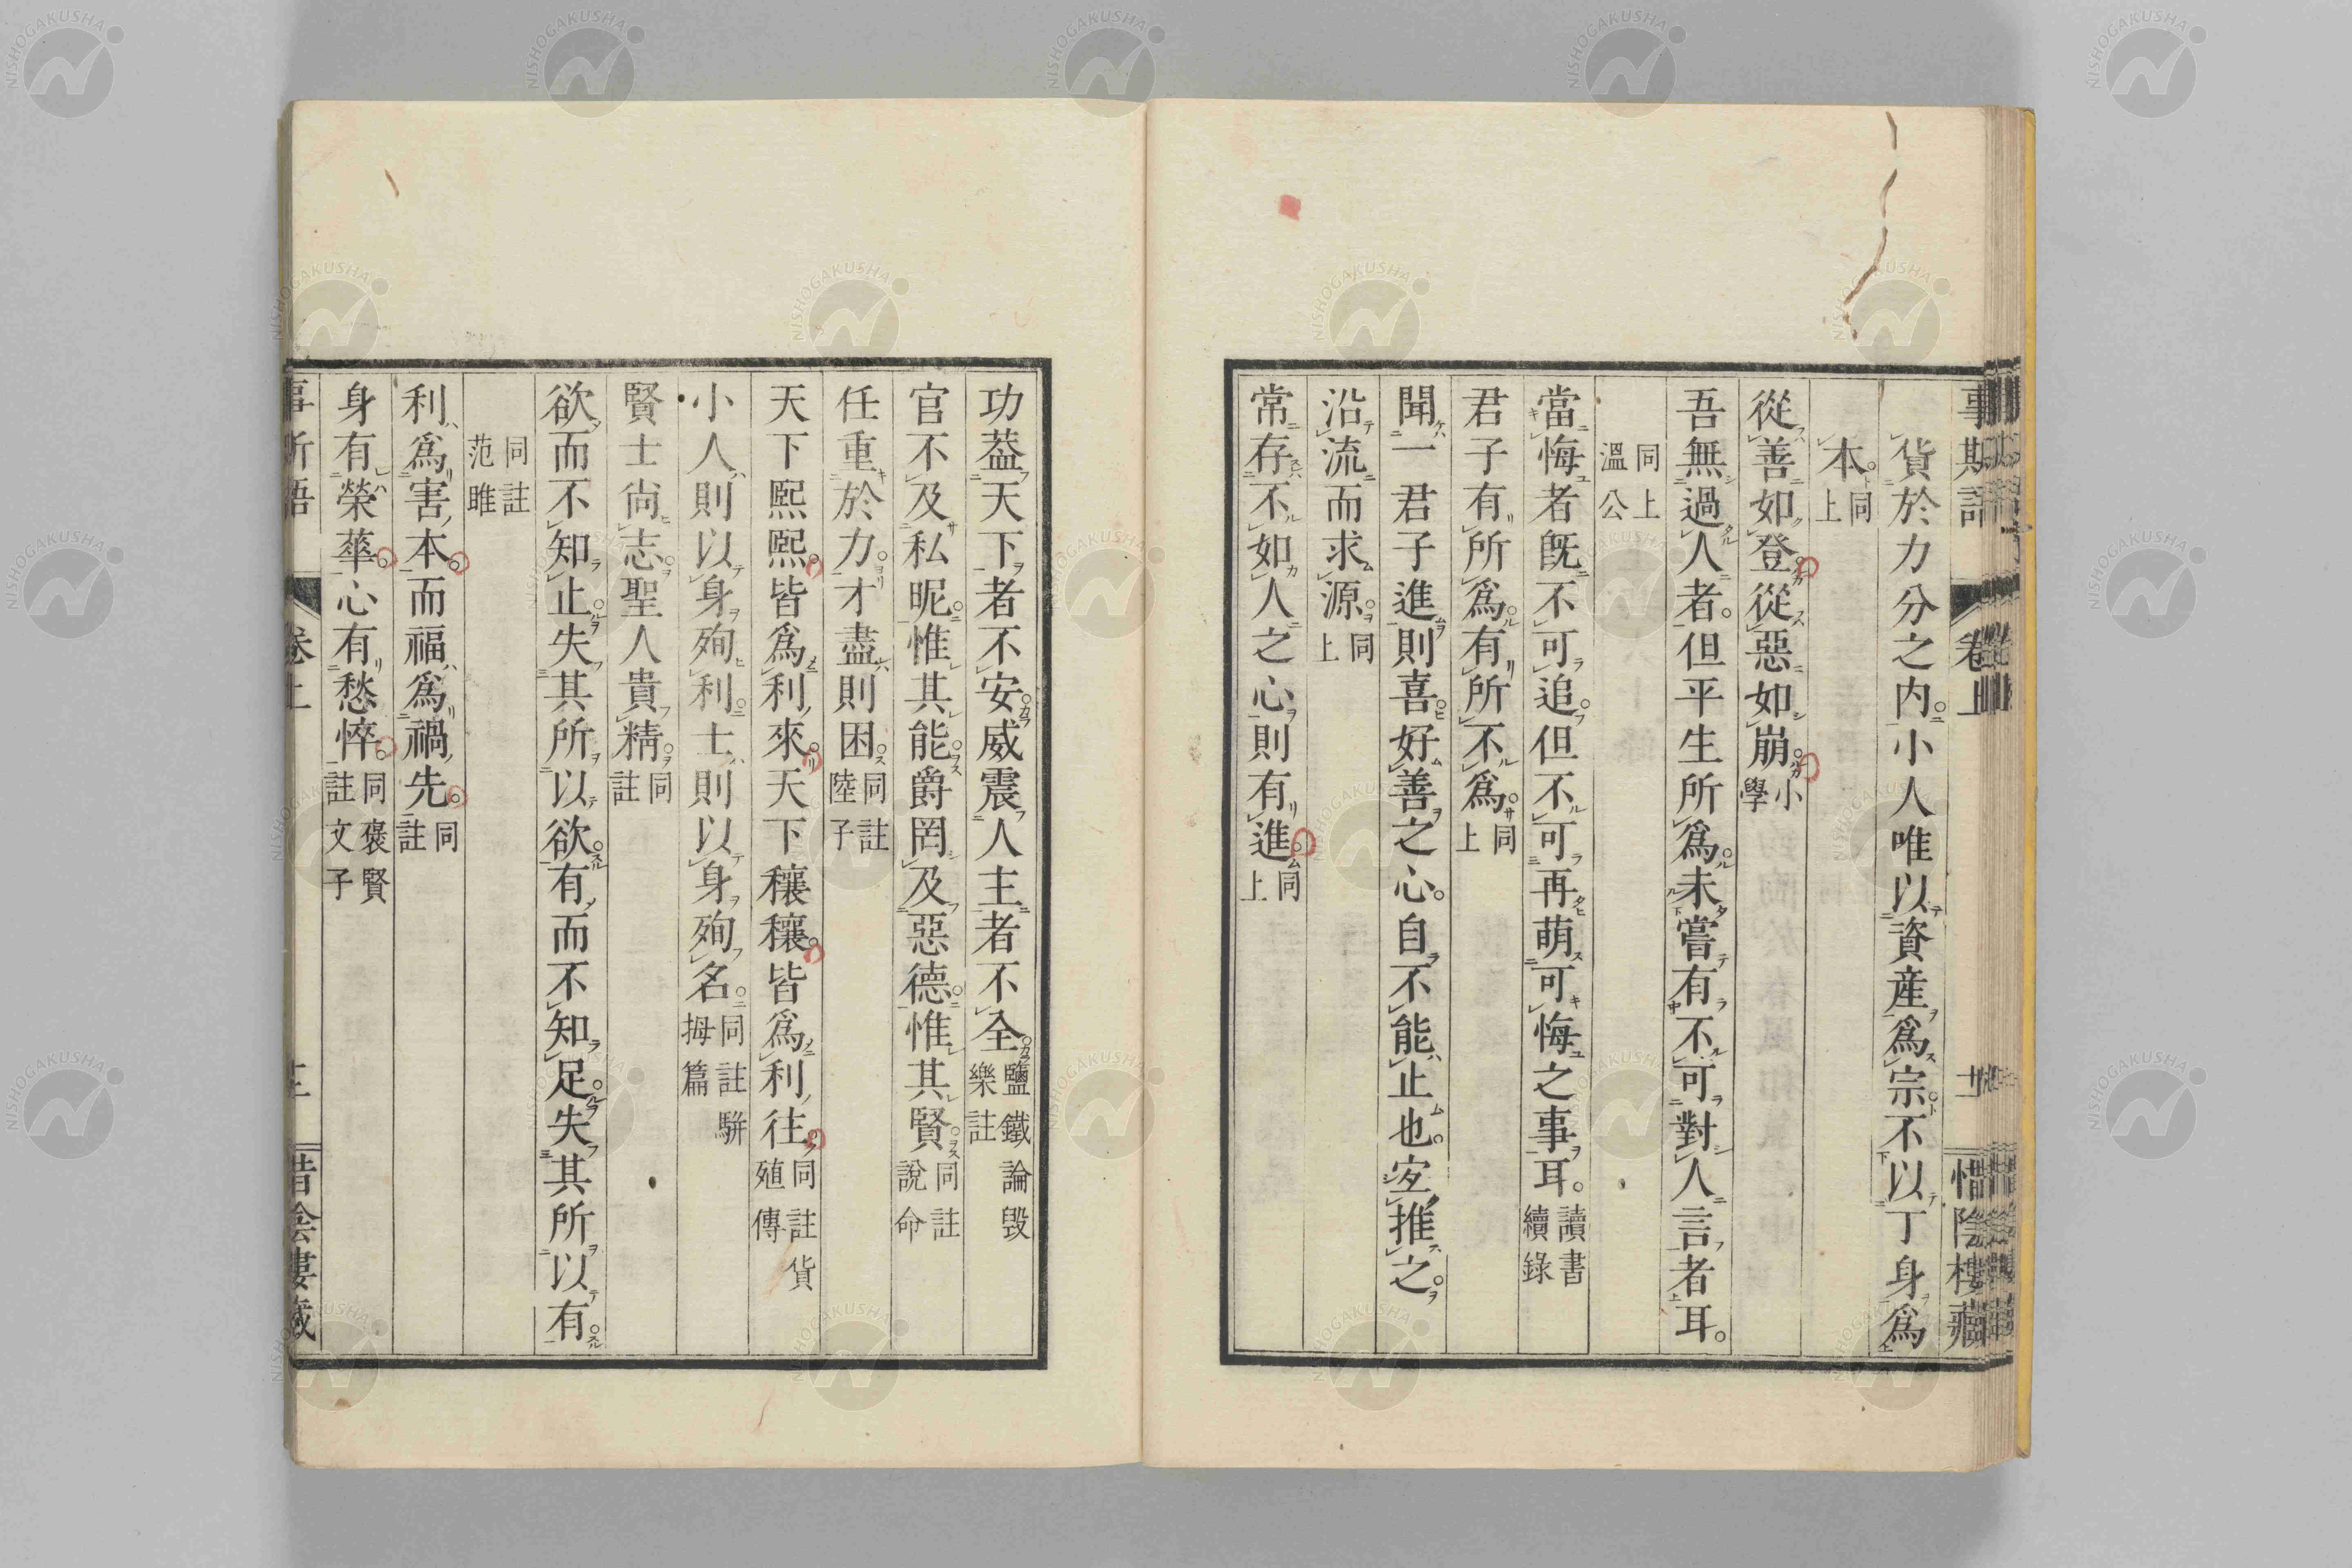 事斯語 卷上 惜陰樓藏
貨於力分之内小人唯以資産爲宗不以丁身爲
本同上
從善如登從惡如崩小學
吾無過人者但平生所爲未嘗有不可對人言者耳
同上溫公
當悔者既不可追但不可再萌可悔之事耳讀書續錄
君子有所爲有所不爲同上
聞一君子進則喜好善之心自不能止也宐推之
沿流而求源同上
常存不如人之心則有進同上
功葢天下者不安威震人主者不全鹽鐵論毀樂註
官不及私昵惟其能爵罔及惡德惟其賢同註說命
任重於力才盡則困同註陸子
天下熙熙皆爲利來天下穰穰皆爲利往同註貨殖傳
小人則以身殉利士則以身殉名同註駢拇篇
賢士尙志聖人貴精同註
欲而不知止失其所以欲有而不知足失其所以有
同註范雎
利爲害本而福爲禍先同註
身有榮華心有愁悴同褒賢註文子
事斯語 卷上 惜陰樓藏
NISHOGAKUSHA